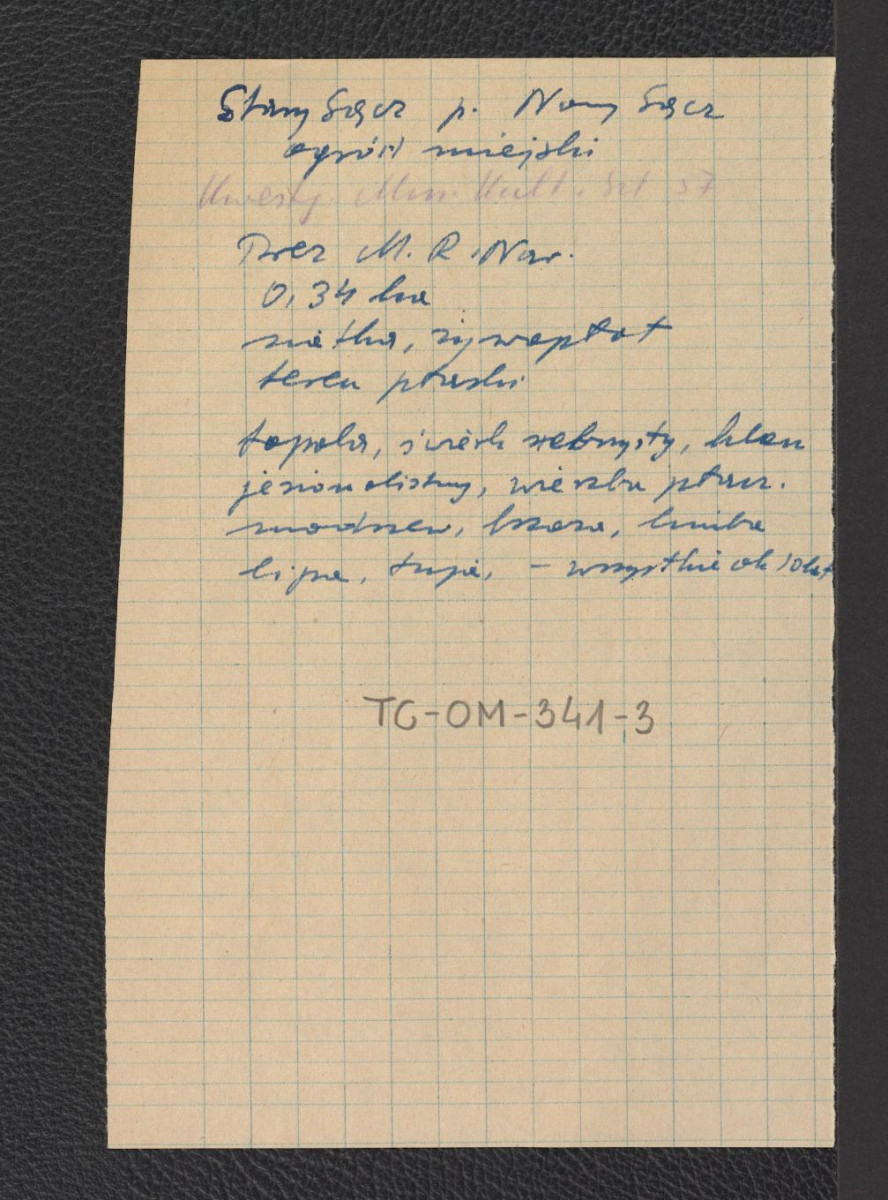 Stary Sącz p. Nowy Sącz
ogród miejski
Kwesty. Min. Kult. Szt 57
Prez M. R. Nar.
0,34 ha
siatka, żywopłot
teren płaski
topola, świerk srebrzysty, klon
jesionolistny, wierzba płacz.
modrzew, brzoza, limba
lipa, tuja, – wszystkie ok 10 lat
TG-OM-341-3